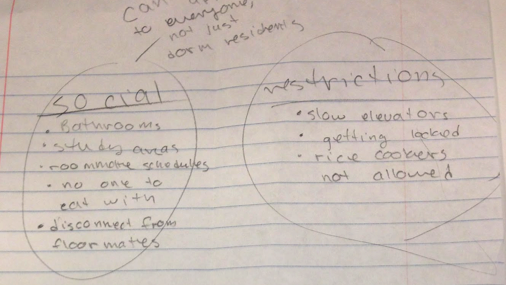 to everyone,
not just
dorm residents
social
• Bathrooms
• study areas
• roommate schedules
• no one to
eat with
• disconnect from
floormates
restrictions
• slow elevators
• getting locked
• rice cookers
not allowed